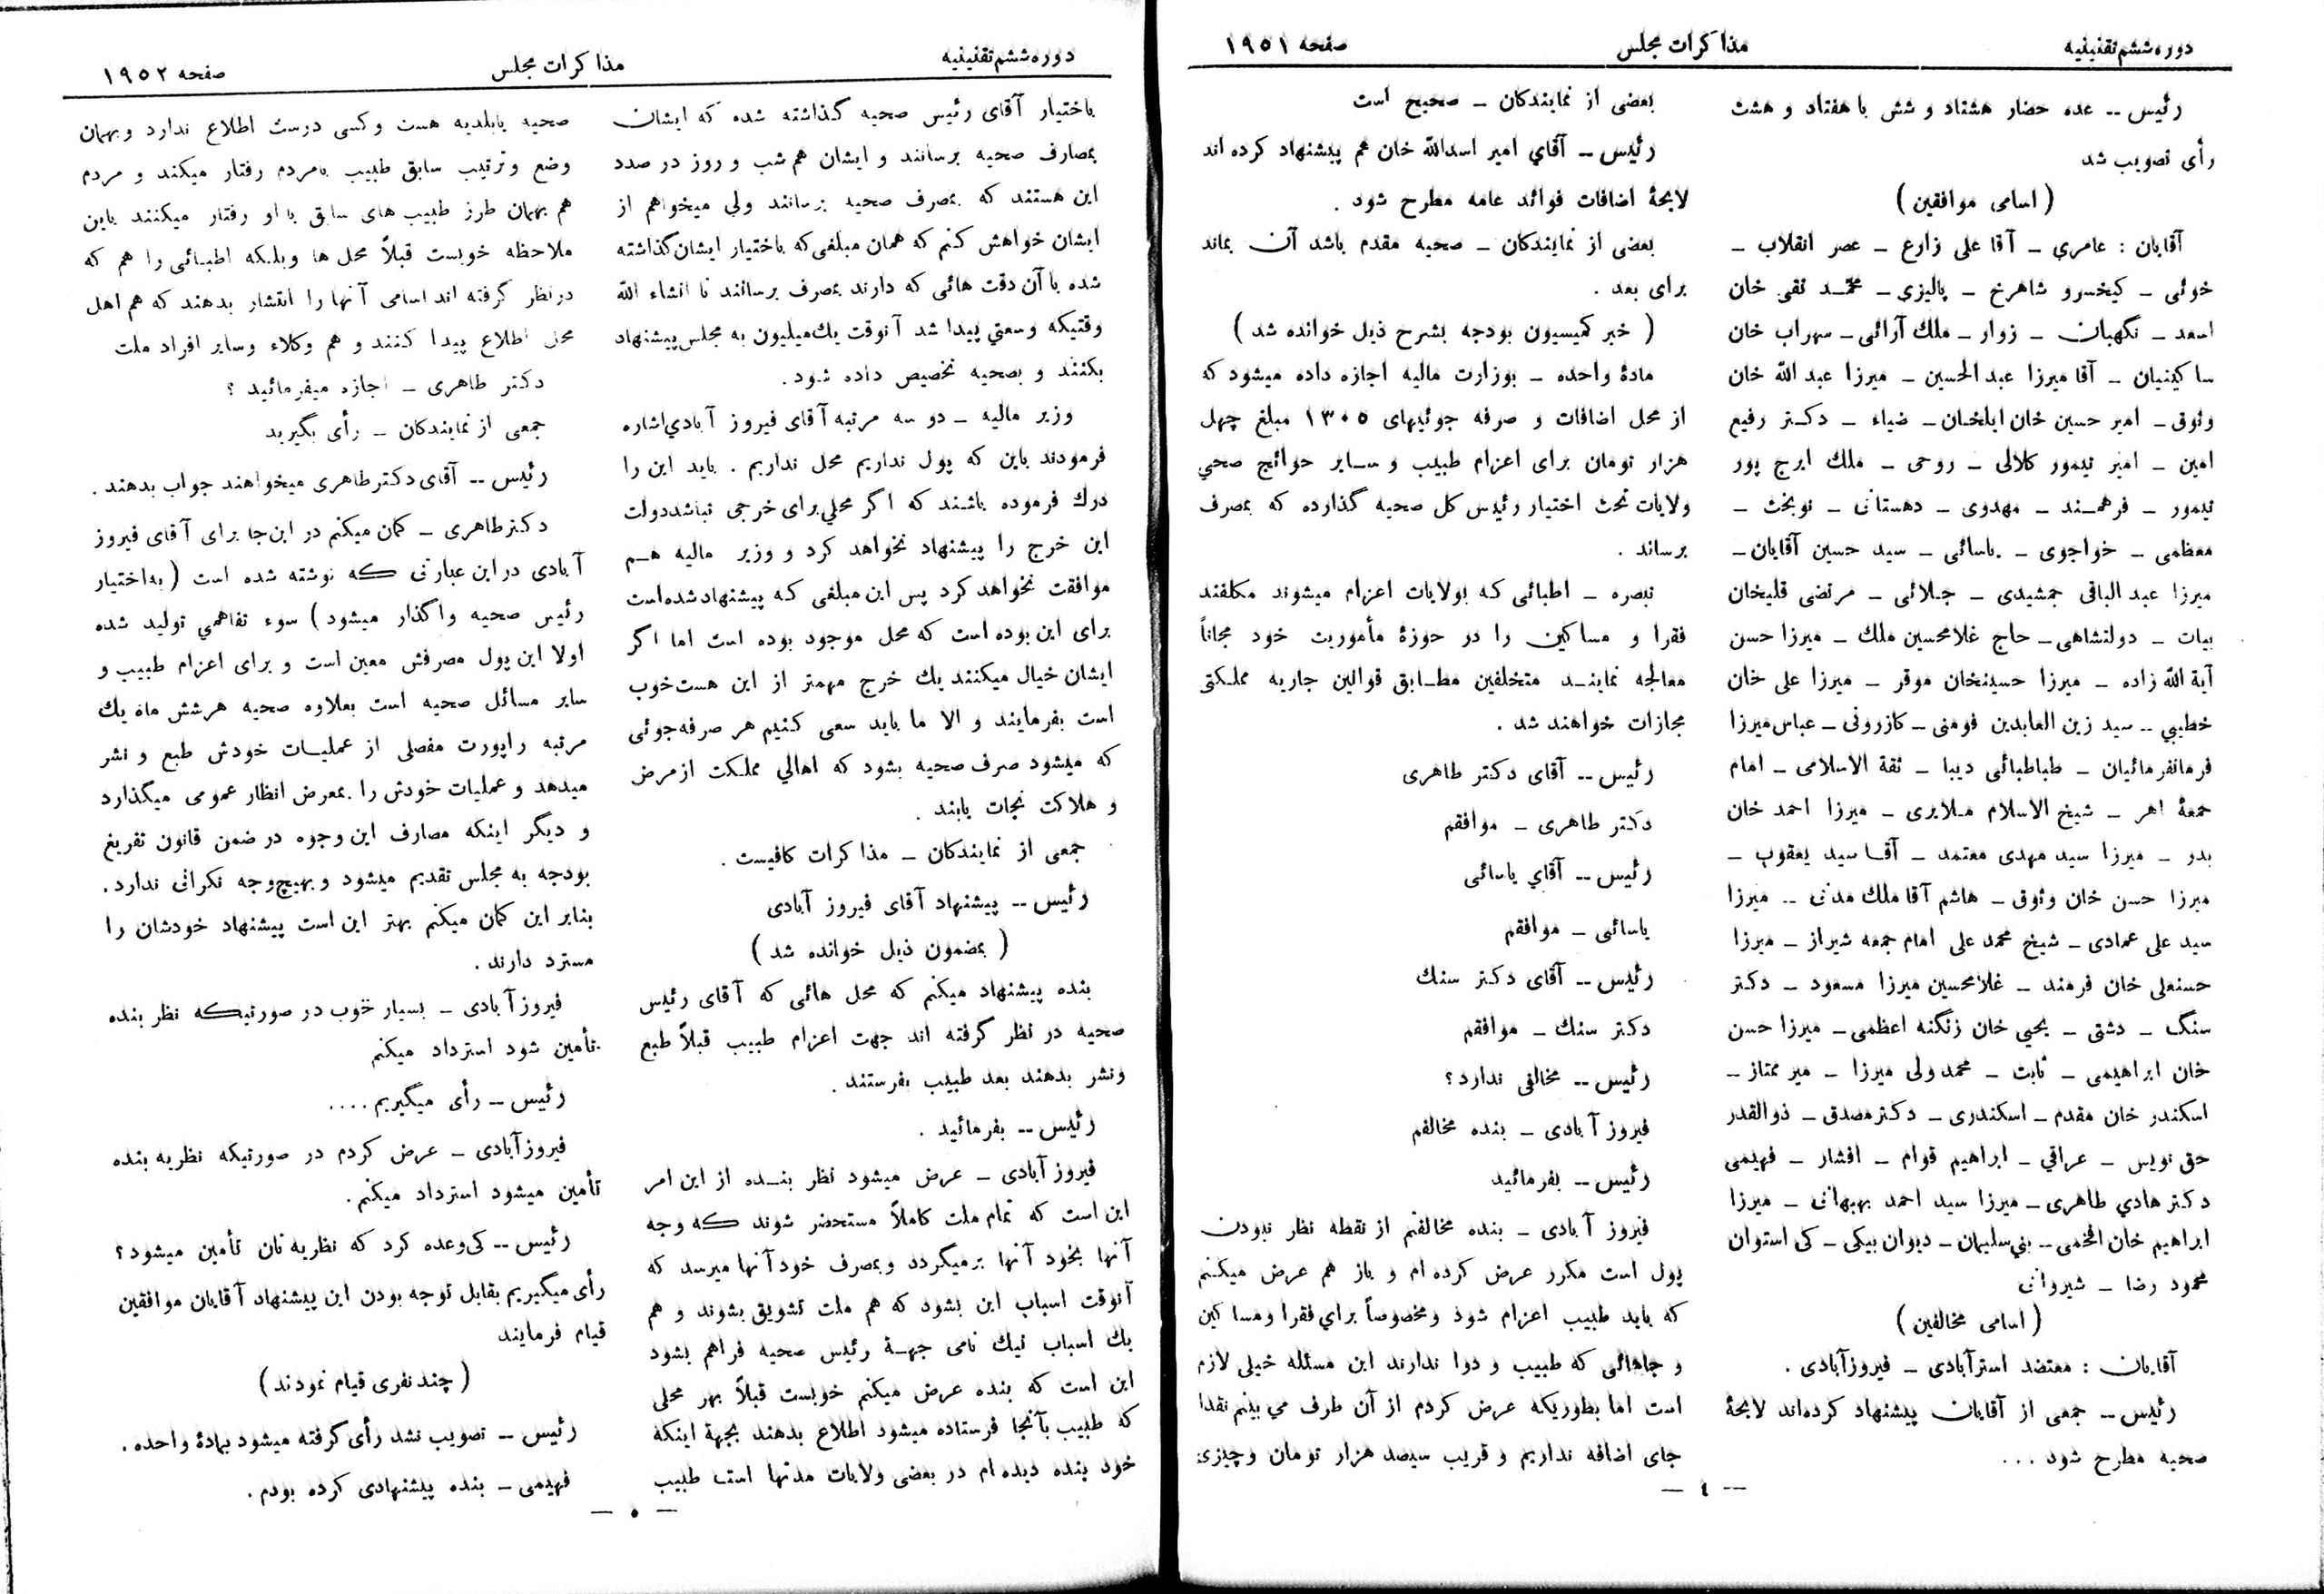 دوره ششم تقنینیه
مذاکرات مجلس
صفحه ۱۹۵۱
رئیس -- عده حضار هشتاد و شش با هفتاد و هشت
رأی تصویب شد
( اسامی موافقین )
آقایان : عامری – آقا علی زارع – عصر انقلاب –
خوئی – کیخسرو شاهرخ – پالیزی – محمد تقی خان
اسعد – نگهبان – زوار – ملك آرائی – سهراب خان
ساکینیان – آقا میرزا عبدالحسین – میرزا عبدالله خان
وثوق – امیر حسین خان ایلخان – ضیاء – دکتر رفیع
امین – امیر تیمور کلالی – روحی – ملك ایرج پور
تیمور – فرهمند – مهدوی – دهستانی – نوبخت –
معظمی – خواجوی – یاسائی – سید حسین آقایان –
میرزا عبدالباقی جمشیدی – جلائی – مرتضی قلیخان
بیات – دولتشاهی – حاج غلامحسین ملك – میرزا حسن
آیة الله زاده – میرزا حسینخان موقر – میرزا علی خان
خطیبی -- سید زین العابدین فومنی – کازرونی – عباس میرزا
فرمانفرمائیان – طباطبائی دیبا – ثقة الاسلامی – امام
جمعهٔ اهر – شیخ الاسلام ملایری – میرزا احمد خان
بدر – میرزا سید مهدی معتمد – آقا سید یعقوب –
میرزا حسن خان وثوق – هاشم آقا ملك مدنی -- میرزا
سید علی عمادی – شیخ محمد علی امام جمعه شیراز – میرزا
حسنعلی خان فرمند – غلامحسین میرزا مسعود – دکتر
سنگ – دشتی – یحیی خان زنگنه اعظمی – میرزا حسن
خان ابراهیمی – ثابت – محمد ولی میرزا – میر ممتاز –
اسکندر خان مقدم – اسکندری – دکتر مصدق – ذوالقدر
حق نویس – عراقی – ابراهیم قوام – افشار – فهیمی
دکتر هادی طاهری – میرزا سید احمد بهبهانی – میرزا
ابراهیم خان افخمی -- بنی سلیمان – دیوان بیگی – کی استوان
محمود رضا – شیروانی
( اسامی مخالفین )
آقایان : معتضد استرآبادی – فیروزآبادی .
رئیس -- جمعی از آقایان پیشنهاد کرده‌اند لایحهٔ
صحیه مطرح شود ...
بعضی از نمایندگان – صحیح است
رئیس – آقای امیر اسدالله خان هم پیشنهاد کرده اند
لایحهٔ اضافات فوائد عامه مطرح شود .
بعضی از نمایندگان – صحیه مقدم باشد آن بماند
برای بعد .
( خبر کمیسیون بودجه بشرح ذیل خوانده شد )
مادهٔ واحده – بوزارت مالیه اجازه داده میشود که
از محل اضافات و صرفه جوئیهای ۱۳۰۵ مبلغ چهل
هزار تومان برای اعزام طبیب و سایر حوائج صحی
ولایات تحت اختیار رئیس کل صحیه گذارده که بمصرف
برساند .
تبصره – اطبائی که بولایات اعزام میشوند مکلفند
فقرا و مساکین را در حوزهٔ مأموریت خود مجاناً
معالجه نمایند متخلفین مطابق قوانین جاریه مملکتی
مجازات خواهند شد .
رئیس -- آقای دکتر طاهری
دکتر طاهری – موافقم
رئیس -- آقای یاسائی
یاسائی – موافقم
رئیس -- آقای دکتر سنك
دکتر سنك – موافقم
رئیس -- مخالفی ندارد؟
فیروز آبادی – بنده مخالفم
رئیس -- بفرمائید
فیروز آبادی – بنده مخالفتم از نقطه نظر نبودن
پول است مکرر عرض کرده ام و باز هم عرض میکنم
که باید طبیب اعزام شود ومخصوصاً برای فقرا ومساکین
و جاهائی که طبیب و دوا ندارند این مسئله خیلی لازم
است اما بطوریکه عرض کردم از آن طرف می بینم نقدا
جای اضافه نداریم و قریب سیصد هزار تومان وچیزی
-- ٤ --
دوره ششم تقنینیه
مذاکرات مجلس
صفحه ۱۹۵۲
باختیار آقای رئیس صحیه گذاشته شده که ایشان
بمصارف صحیه برسانند و ایشان هم شب و روز در صدد
این هستند که بمصرف صحیه برسانند ولی میخواهم از
ایشان خواهش کنم که همان مبلغی که باختیار ایشان گذاشته
شده با آن دقت هائی که دارند بمصرف برسانند تا انشاء الله
وقتیکه وسعتی پیدا شد آنوقت یك میلیون به مجلس پیشنهاد
بکنند و بصحیه تخصیص داده شود.
وزیر مالیه – دو سه مرتبه آقای فیروز آبادی اشاره
فرمودند باین که پول نداریم محل نداریم . باید این را
درك فرموده باشند که اگر محلی برای خرجی نباشد دولت
این خرج را پیشنهاد نخواهد کرد و وزیر مالیه هم
موافقت نخواهد کرد پس این مبلغی که پیشنهاد شده است
برای این بوده است که محل موجود بوده است اما اگر
ایشان خیال میکنند یك خرج مهمتر از این هست خوب
است بفرمایند و الا ما باید سعی کنیم هر صرفه جوئی
که میشود صرف صحیه بشود که اهالی مملکت از مرض
و هلاکت نجات یابند .
جمعی از نمایندگان – مذاکرات کافیست .
رئیس -- پیشنهاد آقای فیروز آبادی
( بمضمون ذیل خوانده شد )
بنده پیشنهاد میکنم که محل هائی که آقای رئیس
صحیه در نظر گرفته اند جهت اعزام طبیب قبلاً طبع
ونشر بدهند بعد طبیب بفرستند .
رئیس -- بفرمائید .
فیروز آبادی – عرض میشود نظر بنده از این امر
این است که تمام ملت کاملاً مستحضر شوند که وجه
آنها بخود آنها برمیگردد وبمصرف خود آنها میرسد که
آنوقت اسباب این بشود که هم ملت تشویق بشوند و هم
یك اسباب نیك نامی جهة رئیس صحیه فراهم بشود
این است که بنده عرض میکنم خوبست قبلاً بهر محلی
که طبیب بآنجا فرستاده میشود اطلاع بدهند بجهة اینکه
خود بنده دیده ام در بعضی ولایات مدتها است طبیب
صحیه یا بلدیه هست وکسی درست اطلاع ندارد وبهمان
وضع وترتیب سابق طبیب بامردم رفتار میکند و مردم
هم بهمان طرز طبیب های سابق با او رفتار میکنند باین
ملاحظه خوبست قبلاً محل ها وبلکه اطبائی را هم که
در نظر گرفته اند اسامی آنها را انتشار بدهند که هم اهل
محل اطلاع پیدا کنند و هم وکلاء وسایر افراد ملت
دکتر طاهری – اجازه میفرمائید ؟
جمعی از نمایندکان – رأی بگیرید
رئیس -- آقای دکتر طاهری میخواهند جواب بدهند .
دکتر طاهری – گمان میکنم در این جا برای آقای فیروز
آبادی در این عبارتی که نوشته شده است ( به اختیار
رئیس صحیه واگذار میشود ) سوء تفاهمی تولید شده
اولا این پول مصرفش معین است و برای اعزام طبیب و
سایر مسائل صحیه است بعلاوه صحیه هر شش ماه یك
مرتبه راپورت مفصلی از عملیات خودش طبع و نشر
میدهد و عملیات خودش را بمعرض انظار عمومی میگذارد
و دیگر اینکه مصارف این وجوه در ضمن قانون تفریغ
بودجه به مجلس تقدیم میشود و بهیچوجه نگرانی ندارد.
بنابر این گمان میکنم بهتر این است پیشنهاد خودشان را
مسترد دارند .
فیروزآبادی – بسیار خوب در صورتیکه نظر بنده
تأمین شود استرداد میکنم
رئیس -- رأی میگیریم....
فیروزآبادی – عرض کردم در صورتیکه نظریه بنده
تأمین میشود استرداد میکنم.
رئیس -- کی وعده کرد که نظریه تان تأمین میشود؟
رأی میگیریم بقابل توجه بودن این پیشنهاد آقایان موافقین
قیام فرمایند
( چند نفری قیام نمودند )
رئیس -- تصویب نشد رأی گرفته میشود بمادهٔ واحده .
فهیمی – بنده پیشنهادی کرده بودم .
— ٥ —